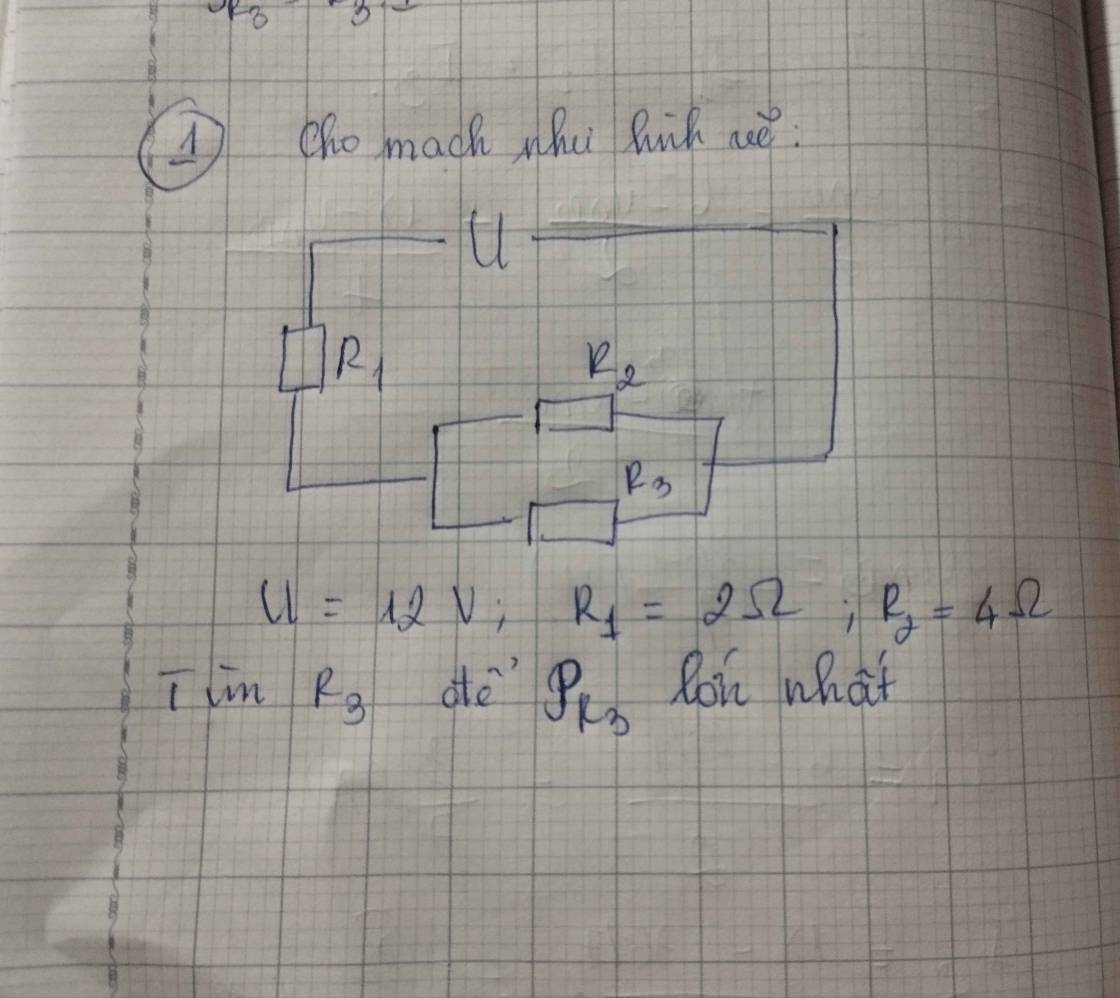 1 Cho mạch như hình vẽ:
U
R1
R2
R3
U = 12 V; R1 = 2Ω ; R2 = 4Ω
Tìm R3 để PR3 lớn nhất